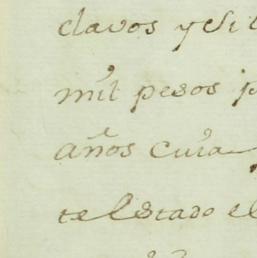 clavos y si
mil pesos p
años cuia
te estado el